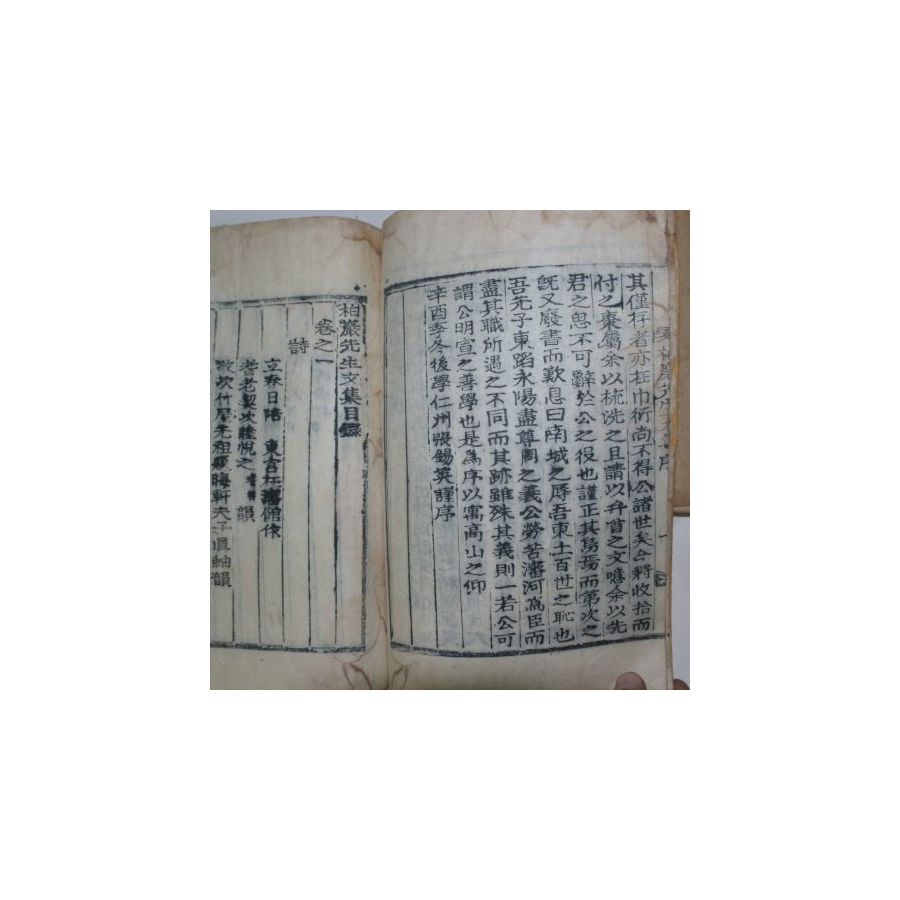 其僅存者亦在巾衍尚不得公諸世矣公將收拾而
付之棗屬余以梳洗之且請以弁首之文噫余以先
君之思不可辭於公之役也謹正其烏焉而第次之
旣又廢書而歎息曰南城之辱吾東土百世之恥也
吾先子東蹈永陽盡尊周之義公勞苦瀋河爲臣而
盡其職所遇之不同而其跡雖殊其義則一若公可
謂公明宣之善學也是爲序以寓高山之仰
辛酉季冬後學仁州張錫英謹序
柏巖先生文集目錄
卷之一
詩
立春日陪 東宮在瀋館作
耆老契次睦悅之 韻
敬次竹屋先祖 晦軒夫子眞軸韻